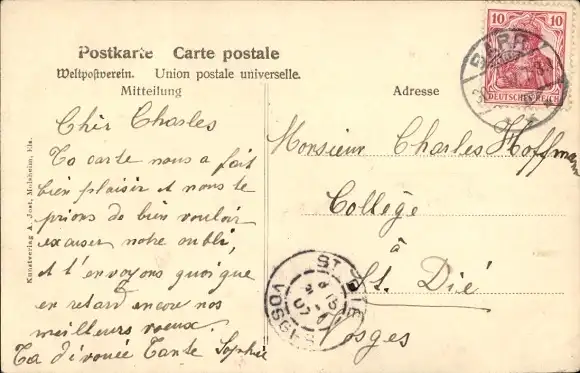 Postkarte Carte postale
Weltpostverein. Union postale universelle.
Mitteilung
Adresse
Chèr Charles
Ta carte nous a fait
bien plaisir et nous te
prions de bien vouloir
excuser notre oubli,
et t'envoyons quoique
en retard encore nos
meilleurs voeux.
Ta dévouée Tante Sophie
Monsieur Charles Hoffmann
Collège
à
St. Dié
Vosges
Kunstverlag A. Jost, Molsheim, Els.
10 10
DEUTSCHES REICH
BARR
ST. DIÉ
VOSGES
07